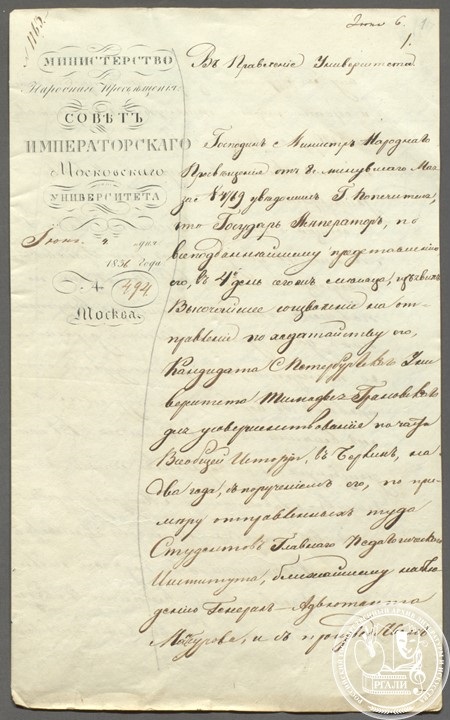 1163.
Июня 6.
1.
МИНИСТЕРСТВО
Народнаго Просвѣщенія
СОВѢТЪ
ИМПЕРАТОРСКАГО
Московскаго
УНИВЕРСИТЕТА
Іюня дня
183 года
494
Москва.
Въ Правленіе Университета
Господинъ Министръ Народнаго
Просвѣщенія отъ минувшаго Мая
за увѣдомилъ Г. Попечителя,
что Государь Императоръ, по
всеподданнѣйшему представленію
его, въ 4й день сего мѣсяца,
Высочайшее соизволеніе на от-
правленіе по ходатайству его,
Кандидата С Петербургскаго Уни
верситета Тимофея Грановскаго
для усовершенствованія по части
Всеобщей Исторіи, въ Берлинъ, на
два года, съ порученіемъ его, по при-
мѣру отправленныхъ туда
Студентовъ Главнаго Педагогическаго
Института, ближайшему наблю
денію Генералъ Адъютанта
Мансурова, и съ
РГАЛИ